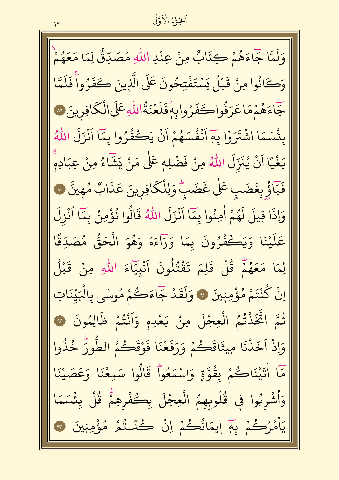 اَلْجُزْءُ الْاَوَّلُ
وَلَمَّا جَٓاءَهُمْ كِتَابٌ مِنْ عِنْدِ اللّٰهِ مُصَدِّقٌ لِمَا مَعَهُمْۙ
وَكَانُوا مِنْ قَبْلُ يَسْتَفْتِحُونَ عَلَى الَّذ۪ينَ كَفَرُواۚ فَلَمَّا
جَٓاءَهُمْ مَا عَرَفُوا كَفَرُوا بِه۪ۘ فَلَعْنَةُ اللّٰهِ عَلَى الْكَافِر۪ينَ ﴿٨٩﴾
بِئْسَمَا اشْتَرَوْا بِه۪ٓ اَنْفُسَهُمْ اَنْ يَكْفُرُوا بِمَٓا اَنْزَلَ اللّٰهُ
بَغْيًا اَنْ يُنَزِّلَ اللّٰهُ مِنْ فَضْلِه۪ عَلٰى مَنْ يَشَٓاءُ مِنْ عِبَادِه۪ۚ
فَبَٓاؤُ بِغَضَبٍ عَلٰى غَضَبٍۜ وَلِلْكَافِر۪ينَ عَذَابٌ مُه۪ينٌ ﴿٩٠﴾
وَاِذَا ق۪يلَ لَهُمْ اٰمِنُوا بِمَٓا اَنْزَلَ اللّٰهُ قَالُوا نُؤْمِنُ بِمَٓا اُنْزِلَ
عَلَيْنَا وَيَكْفُرُونَ بِمَا وَرَٓاءَهُ وَهُوَ الْحَقُّ مُصَدِّقًا
لِمَا مَعَهُمْۜ قُلْ فَلِمَ تَقْتُلُونَ اَنْبِيَٓاءَ اللّٰهِ مِنْ قَبْلُ
اِنْ كُنْتُمْ مُؤْمِن۪ينَ ﴿٩١﴾ وَلَقَدْ جَٓاءَكُمْ مُوسٰى بِالْبَيِّنَاتِ
ثُمَّ اتَّخَذْتُمُ الْعِجْلَ مِنْ بَعْدِه۪ وَاَنْتُمْ ظَالِمُونَ ﴿٩٢﴾
وَاِذْ اَخَذْنَا م۪يثَاقَكُمْ وَرَفَعْنَا فَوْقَكُمُ الطُّورَۜ خُذُوا
مَٓا اٰتَيْنَاكُمْ بِقُوَّةٍ وَاسْمَعُواۜ قَالُوا سَمِعْنَا وَعَصَيْنَا
وَاُشْرِبُوا ف۪ي قُلُوبِهِمُ الْعِجْلَ بِكُفْرِهِمْۜ قُلْ بِئْسَمَا
يَأْمُرُكُمْ بِه۪ٓ ا۪يمَانُكُمْ اِنْ كُنْتُمْ مُؤْمِن۪ينَ ﴿٩٣﴾